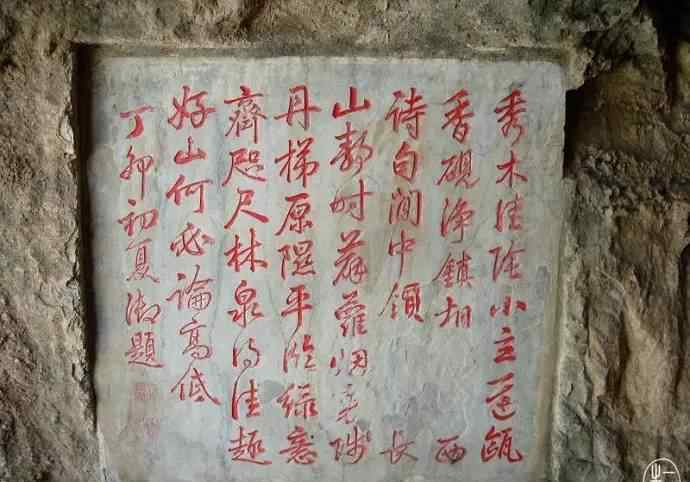 秀木佳陰小甌
香硯淨鎮相 西
詩句閒中領 長
山靜时薜蘿烟陟
丹梯原隰平臨緑意
齊咫尺林泉得佳趣
好山何必論高低
丁卯初夏御題